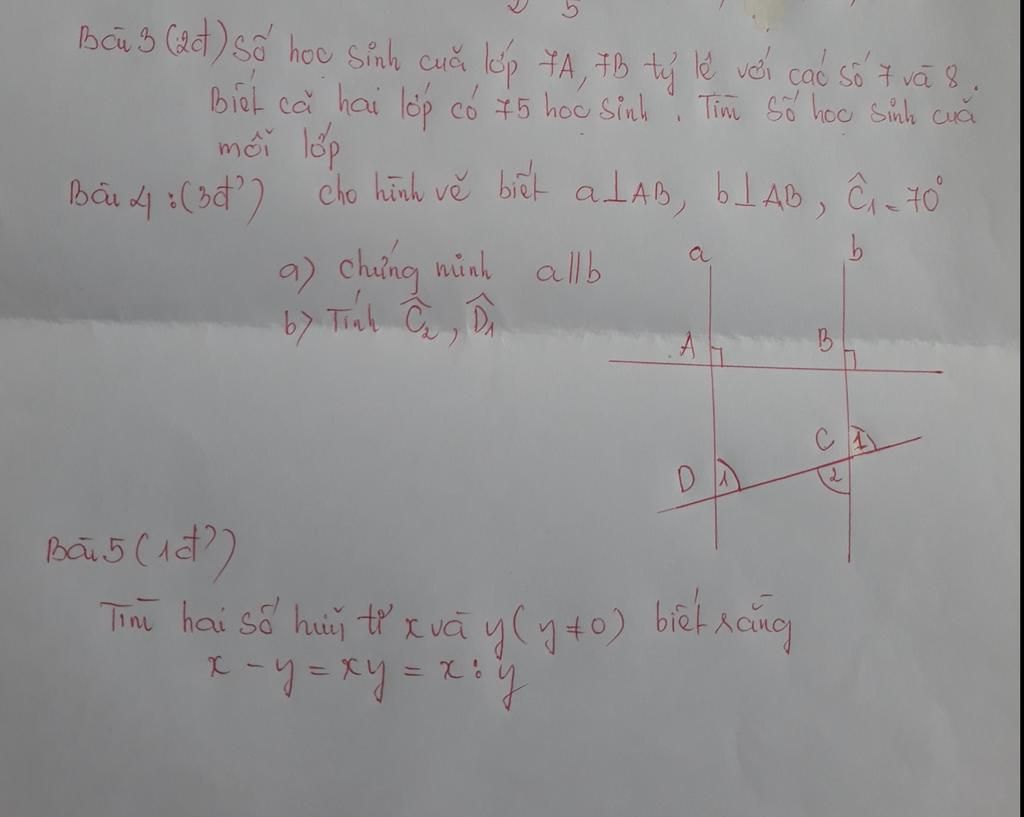 2 5
Bài 3 (2đ) Số học sinh của lớp 7A, 7B tỷ lệ với các số 7 và 8.
Biết cả hai lớp có 75 học sinh. Tìm số học sinh của
mỗi lớp
Bài 4: (3đ) cho hình vẽ biết a⊥AB, b⊥AB, Ĉ₁ = 70°
a) chứng minh a//b
b) Tính Ĉ₂, D̂₁
a b
A B
C 1
D 1 2
Bài 5 (1đ)
Tìm hai số hữu tỉ x và y (y ≠ 0) biết rằng
x - y = xy = x : y